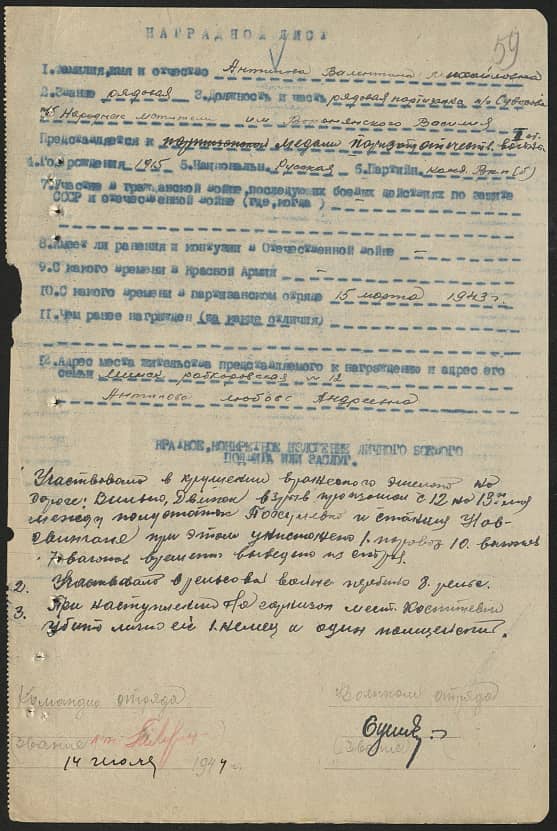 НАГРАДНОЙ ЛИСТ
59
1. Фамилия, имя и отчество Антипова Валентина Михайловна
2. Звание рядовая 3. Должность и часть рядовая партизанка п/о Суворова
Народные мстители им Воронянского Василия
Представляется к партизанской медали Партиз отечеств войны II ст.
4. Год рождения 1915 5. Национальн. Русская 6. Партийн. канд. Вкп(б)
7. Участие в гражданской войне, последующих боевых действиях по защите
СССР и отечественной войне (где, когда) —
8. Имеет ли ранения и контузии в Отечественной войне —
9. С какого времени в Красной Армии —
10. С какого времени в партизанском отряде 15 марта 1943 г.
11. Чем ранее награжден (за какие отличия)
12. Адрес места жительства представляемого к награждению и адрес его
семьи Минск рабкоровская № 12
Антипова Любовь Андреевна
КРАТКОЕ, КОНКРЕТНОЕ ИЗЛОЖЕНИЕ ЛИЧНОГО БОЕВОГО
ПОДВИГА ИЛИ ЗАСЛУГ.
Участвовала в крушении вражеского эшелона на
дороге: Вильно, Двинск взрыв произошел с 12 на 13
между и станция Нов-
при этом уничтожено 1. паровоз 10. вагонов
7 времени выведено из строя.
2. Участвовала в рельсовой войне перебито 8. рельс.
3. При наступлении на гарнизон мест.
убито лично ей 1. немец и один полицейский.
Командир отряда
Военком отряда
Звание
(Звание)
14 июля 1944 г.